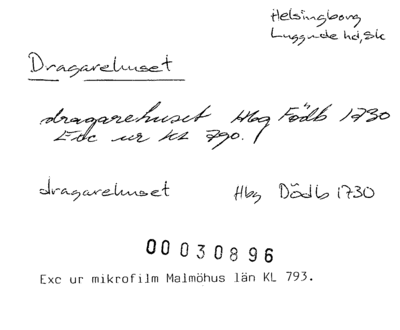 Helsingborg
Luggude hd, Sk
Dragarehuset
dragarehuset Hbg Födb 1730
Exc ur KL 790.
dragarehuset Hbg Dödb 1730
00030896
Exc ur mikrofilm Malmöhus län KL 793.